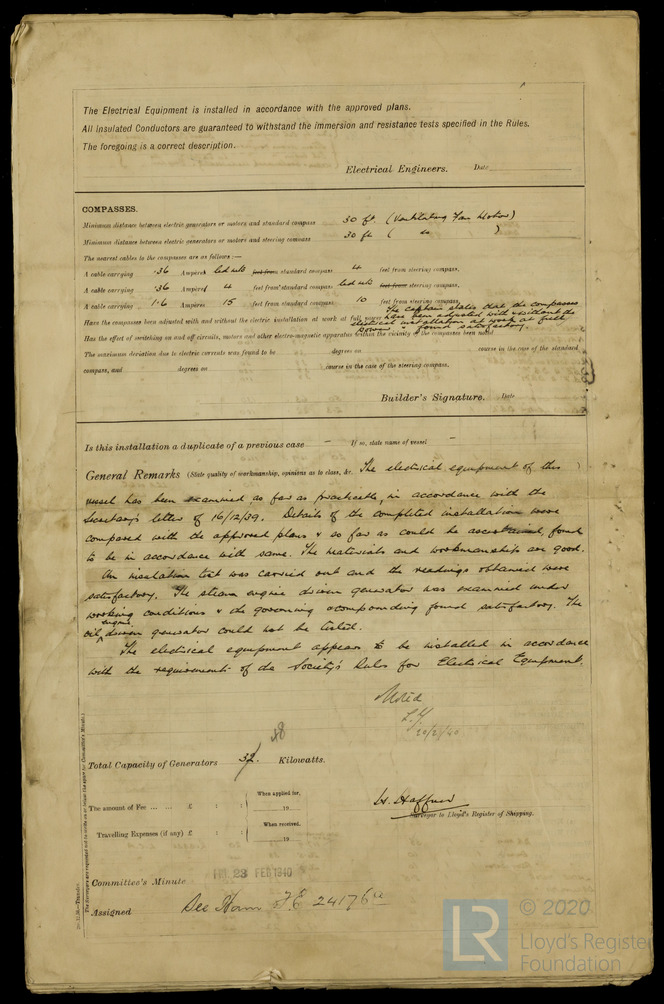 The Electrical Equipment is installed in accordance with the approved plans.
All Insulated Conductors are guaranteed to withstand the immersion and resistance tests specified in the Rules.
The foregoing is a correct description.
Electrical Engineers. Date
COMPASSES.
Minimum distance between electric generators or motors and standard compass 30 ft. (Ventilating Fan Motor)
Minimum distance between electric generators or motors and steering compass 30 ft. ( do )
The nearest cables to the compasses are as follows:—
A cable carrying .36 Amperes led into feet from standard compass 4 feet from steering compass.
A cable carrying .36 Amperes 4 feet from standard compass led into feet from steering compass.
A cable carrying 1.6 Amperes 15 feet from standard compass 10 feet from steering compass.
The Captain states that the compasses
Have the compasses been adjusted with and without the electric installation at work at full power have been adjusted with & without the
electrical installation at work at full
power & found satisfactory.
Has the effect of switching on and off circuits, motors and other electro-magnetic apparatus within the vicinity of the compasses been noted
The maximum deviation due to electric currents was found to be degrees on course in the case of the standard
compass, and degrees on course in the case of the steering compass.
Builder's Signature. Date
Is this installation a duplicate of a previous case – If so, state name of vessel –
General Remarks (State quality of workmanship, opinions as to class, &c. The electrical equipment of this )
vessel has been examined as far as practicable, in accordance with the
Secretary's letter of 16/12/39. Details of the completed installation were
compared with the approved plans & so far as could be ascertained, found
to be in accordance with same. The materials and workmanship are good.
An insulation test was carried out and the readings obtained were
satisfactory. The steam engine driven generator was examined under
working conditions & the governing & compounding found satisfactory. The
oil engine driven generator could not be tested.
The electrical equipment appears to be installed in accordance
with the requirements of the Society's Rules for Electrical Equipment.
Noted
20/2/40
48
Total Capacity of Generators 32 Kilowatts.
The amount of Fee ... ... £ : : When applied for, 19
Travelling Expenses (if any) £ : : When received, 19
H. Haffner
Surveyor to Lloyd's Register of Shipping.
Committee's Minute FRI. 23 FEB 1940
Assigned See Ham F.E. 24176
© 2020
LR
Lloyd's Register
Foundation